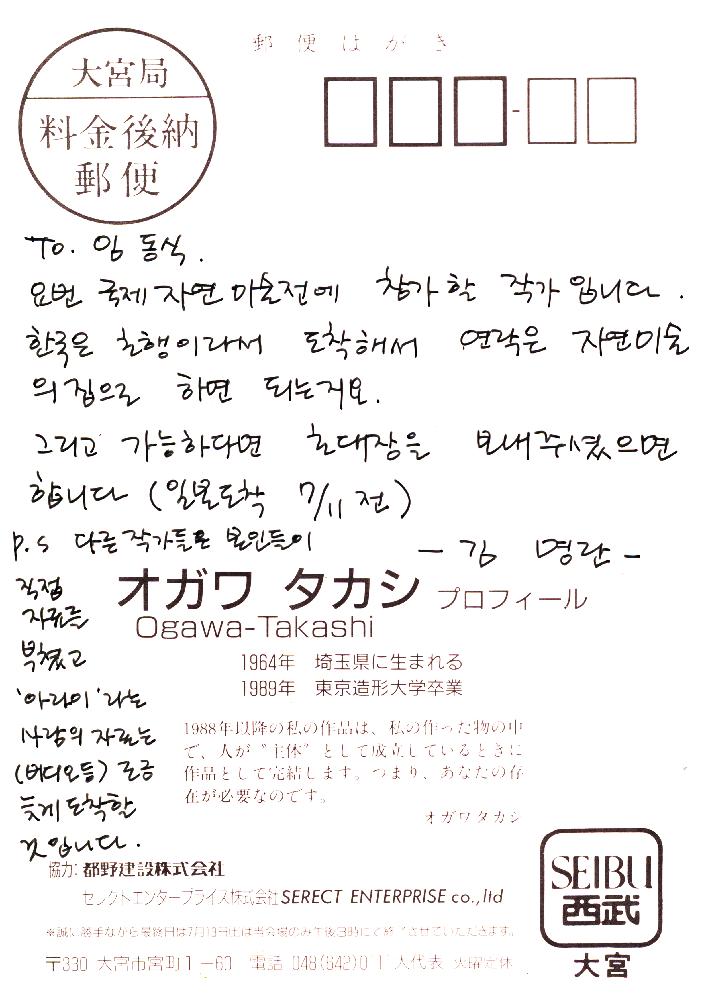 郵便はがき
大宮局
料金後納
郵便
To. 임동식.
요번 국제자연미술전에 참가할 작가입니다.
한국은 초행이라서 도착해서 연락은 자연미술
의집으로 하면 되는거요.
그리고 가능하다면 초대장을 보내주셨으면
합니다 (일본도착 7/11 전)
- 김 명란 -
P.S 다른작가들은 본인들이
직접
자료를
부쳤고
'아라이'라는
사람의 자료는
(비디오등) 조금
늦게 도착할
것입니다.
オガワ タカシ プロフィール
Ogawa-Takashi
1964年 埼玉県に生まれる
1989年 東京造形大学卒業
1988年以降の私の作品は、私の作った物の中
で、人が〝主体〟として成立しているときに
作品として完結します。つまり、あなたの存
在が必要なのです。
オガワタカシ
協力: 都野建設株式会社
セレクトエンタープライス株式会社 SERECT ENTERPRISE co.,ltd
※誠に勝手ながら最終日は7月13日(土)は当会場のみ午後3時にて終了させていただきます。
〒330 大宮市宮町1-60 電話 048(642)0111大代表 火曜定休
SEIBU
西武
大宮